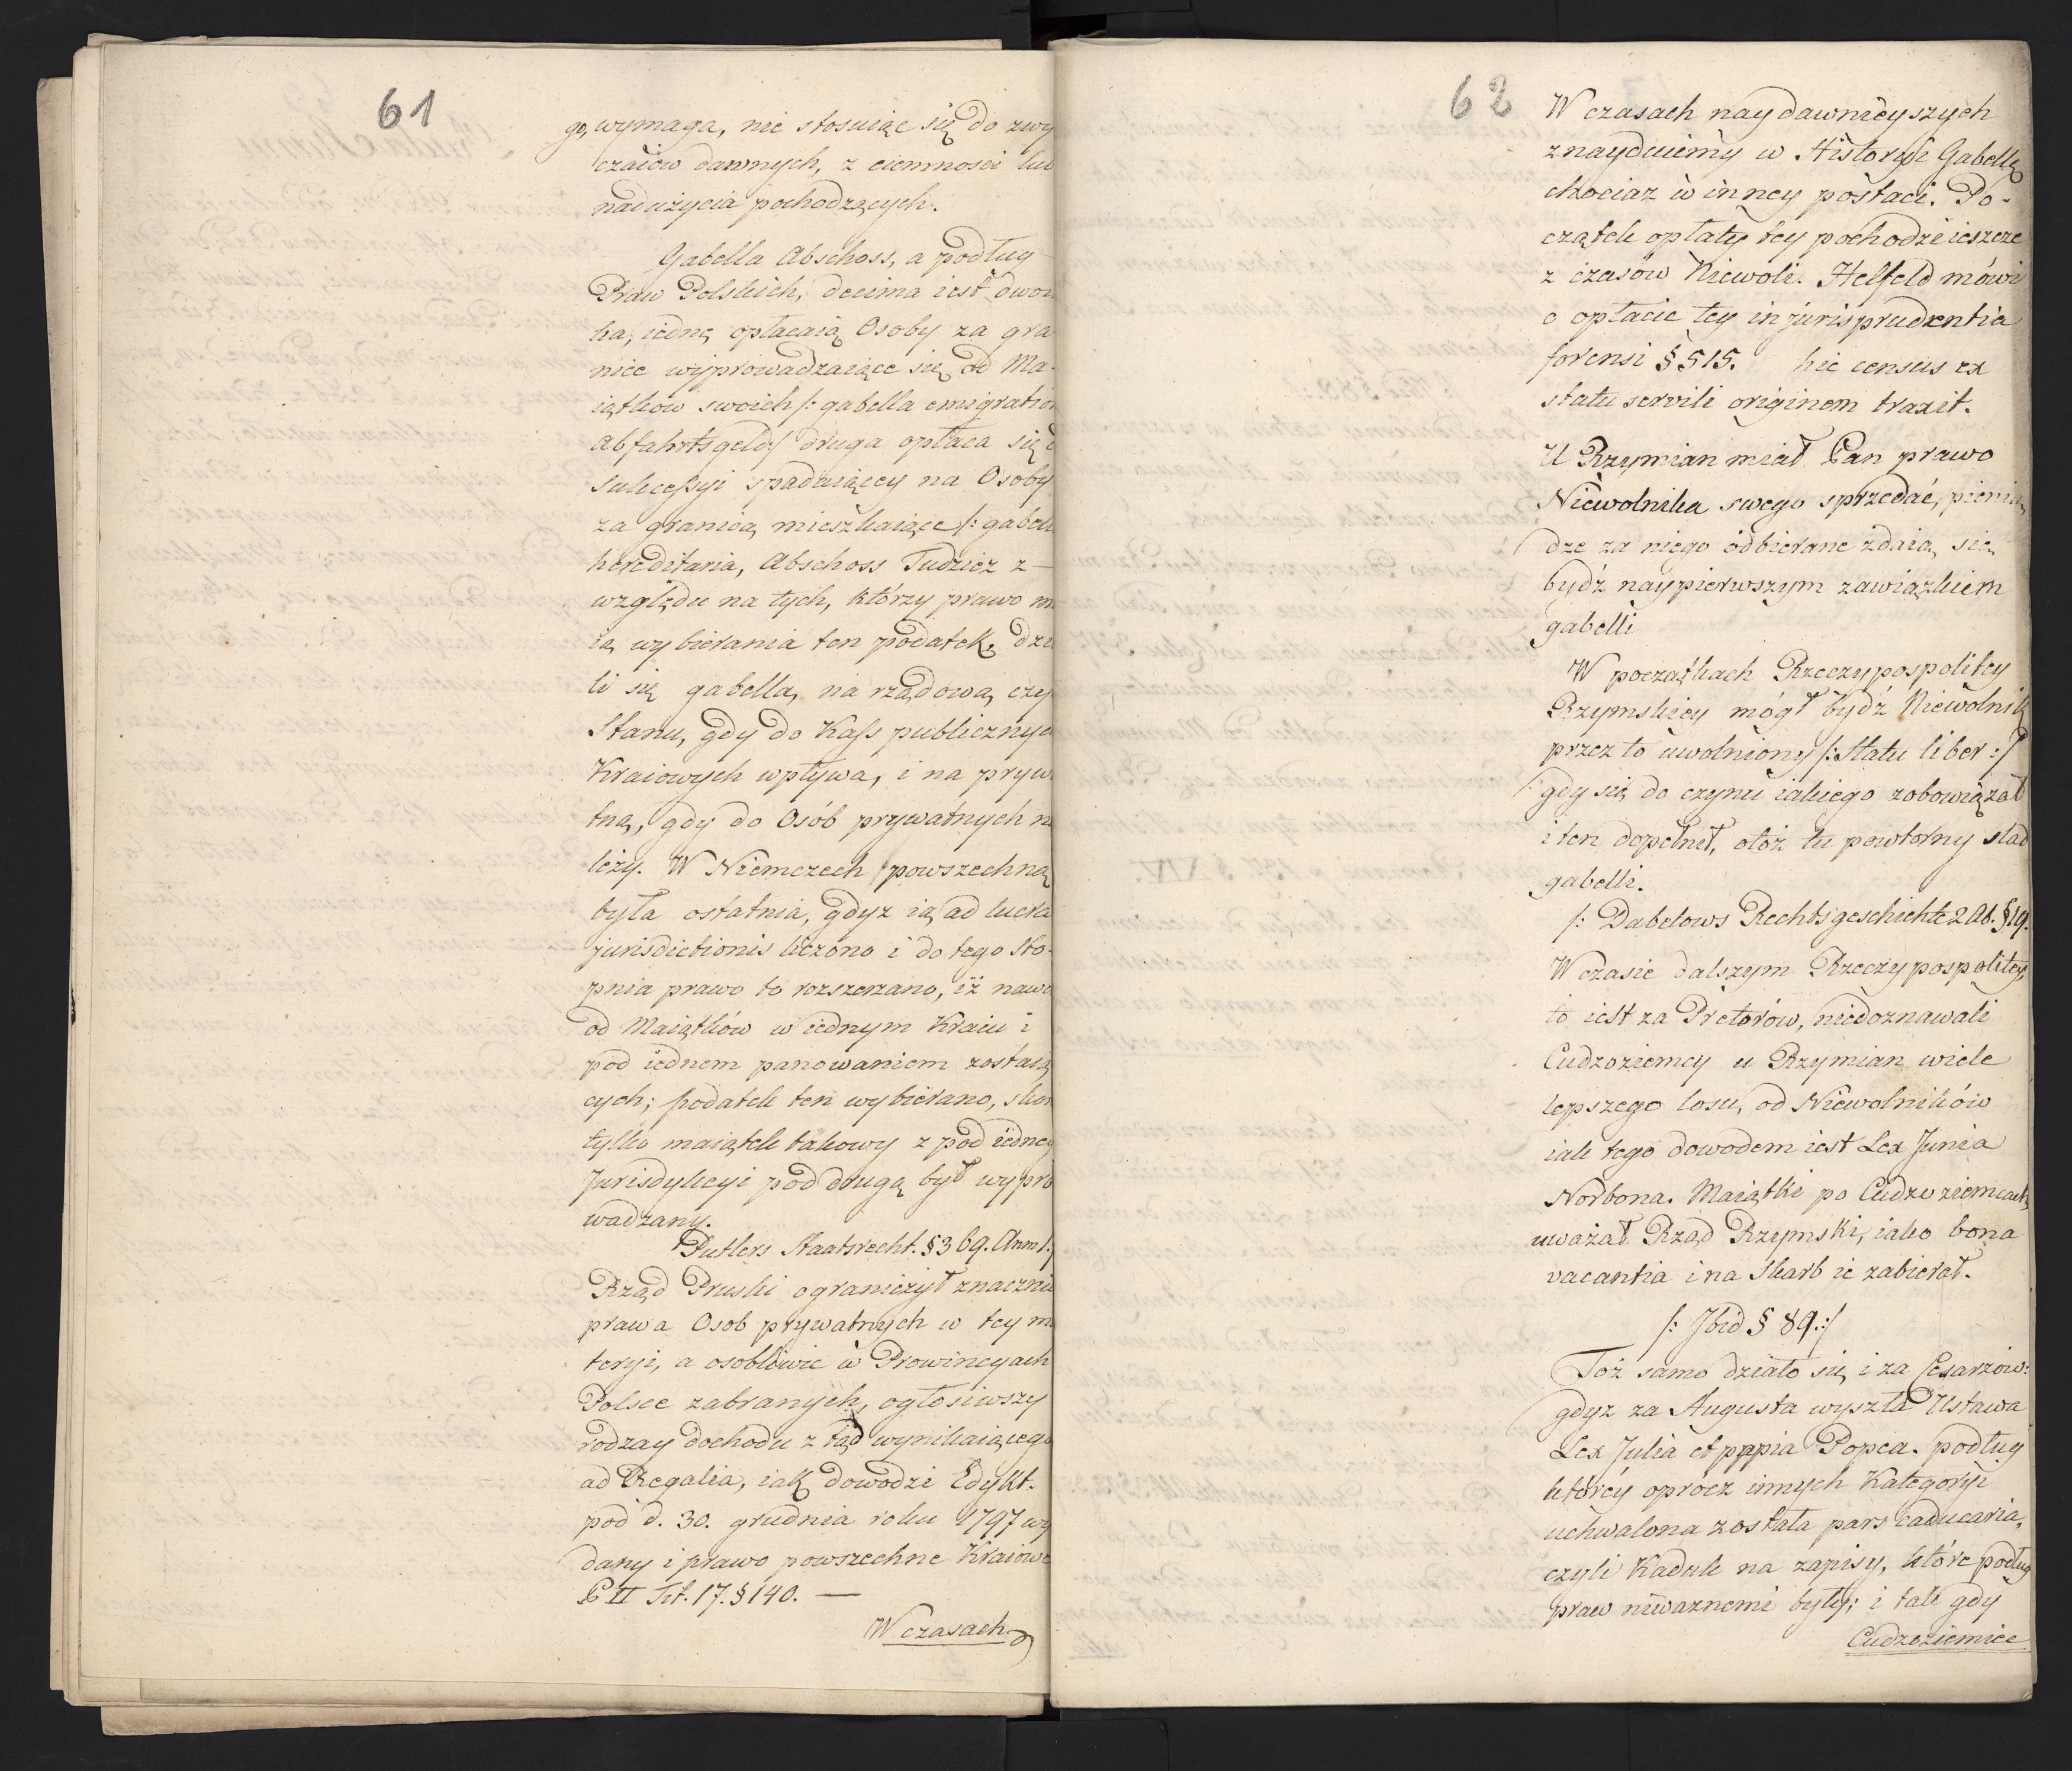 61
go, wymaga, nie stosuiąc się do zwy
czaiów dawnych, z ciemności lub
nadużycia pochodzących.
Gabella Abschoss, a podług
Praw Polskich, decima iest dwoia
ka, iedną opłacaią Osoby za gra
nice wyprowadzaiące się od Ma-
iątków swoich /: gabella emigration
Abfahrtsgeld :/ druga opłaca się
Sukcessyi spadaiącey na Osoby
za granicą mieszkaiące /: gabell
hereditaria, Abschoss Tudzież z
względu na tych, którzy prawo ma
ią wybierania ten podatek, dzie
li się gabella, na rządową, czyli
Stanu, gdy do Kass publicznych
Kraiowych wpływa, i na prywa
tną, gdy do Osób prywatnych na
leży. W Niemczech powszechną
była ostatnia, gdyż ią ad lucra
jurisdictionis liczono i do tego sto-
pnia prawo to rozszerzano, iż nawe
od Maiątków w iednym Kraiu i
pod iednem panowaniem zostaią
cych; podatek ten wybierano, skor
tylko maiątek takowy z pod iedney
Jurisdykcyi pod drugą był wypro
wadzany.
Putlers Staatsrecht. § 369. Anm 1:/
Rząd Pruski ograniczył znacznie
prawa Osob prywatnych w tey ma
teryi, a osobliwie w Prowincyach
Polsce zabranych, ogłosiwszy
rodzay dochodu z tąd wynikaiącego
ad Regalia, iak dowodzi Edykt.
pod d. 30. grudnia roku 1797 wy
dany i prawo powszechne Kraiowe
P II Tit. 17. § 140. —
W czasach
62
W czasach naydawnieyszych
znayduiemy w Historyi Gabellę
chociaz w inney postaci. Po-
czątek opłaty tey pochodzi ieszcze
z czasów Niewoli. Helfeld mówi
o opłacie tey in jurisprudentia
forensi § 515. hic census ex
statu servili originem traxit.
U Rzymian miał Pan prawo
Niewolnika swego sprzedać, pienią
dze za niego odbierane zdaią się
bydź naypierwszym zawiązkiem
gabelli
W początkach Rzeczypospolitey
Rzymskiey mógł bydź Niewolnik
przez to uwolniony /: Statu liber :/
gdy się do czynu iakiego zobowiązał
i ten dopełnił, otoż tu powtorny slad
gabelli.
/: Dabelows Rechtsgeschichte 2 Ab. § 19.
W czasie dalszym Rzeczypospolitey,
to iest za Pretorów, niedoznawali
Cudzoziemcy u Rzymian wiele
lepszego losu, od Niewolników
iak tego dowodem iest Lex Junia
Norbona. Maiątki po Cudzoziemcach
uważał Rząd Rzymski, iako bona
vacantia i na Skarb ie zabierał.
/: Jbid § 89 :/
Toż samo działo się i za Cesarzów:
gdyz za Augusta wyszła Ustawa
Lex Julia et pappia Popea. podług
którey oprocz innych Kategoryi
uchwalona została pars caducaria,
czyli Kaduk na zapisy, które podług
praw nieważnemi były; i tak gdy
Cudzoziemiec